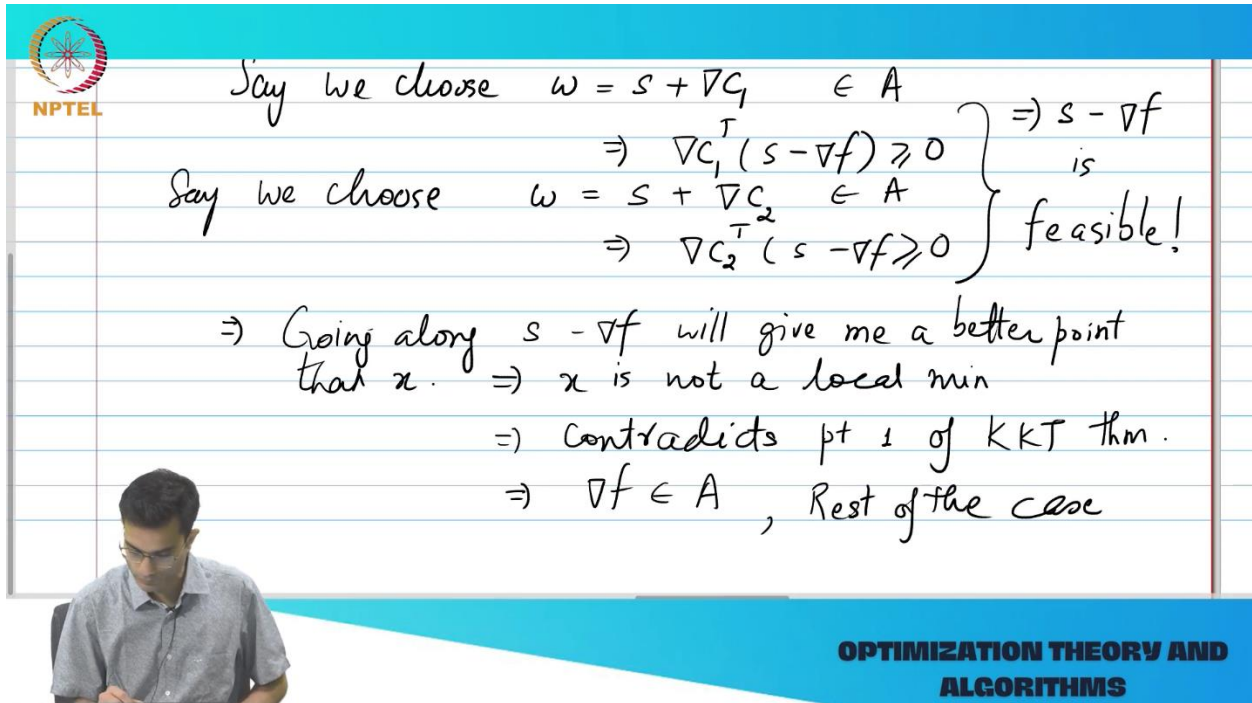 NPTEL
Say we choose w = s + ∇C₁ ∈ A
⇒ ∇C₁ᵀ (s - ∇f) ≥ 0
Say we choose w = s + ∇C₂ ∈ A
⇒ ∇C₂ᵀ (s - ∇f ≥ 0
} ⇒ s - ∇f
is
feasible!
⇒ Going along s - ∇f will give me a better point
than x. ⇒ x is not a local min
⇒ Contradicts pt 1 of KKT thm.
⇒ ∇f ∈ A , Rest of the case
OPTIMIZATION THEORY AND
ALGORITHMS